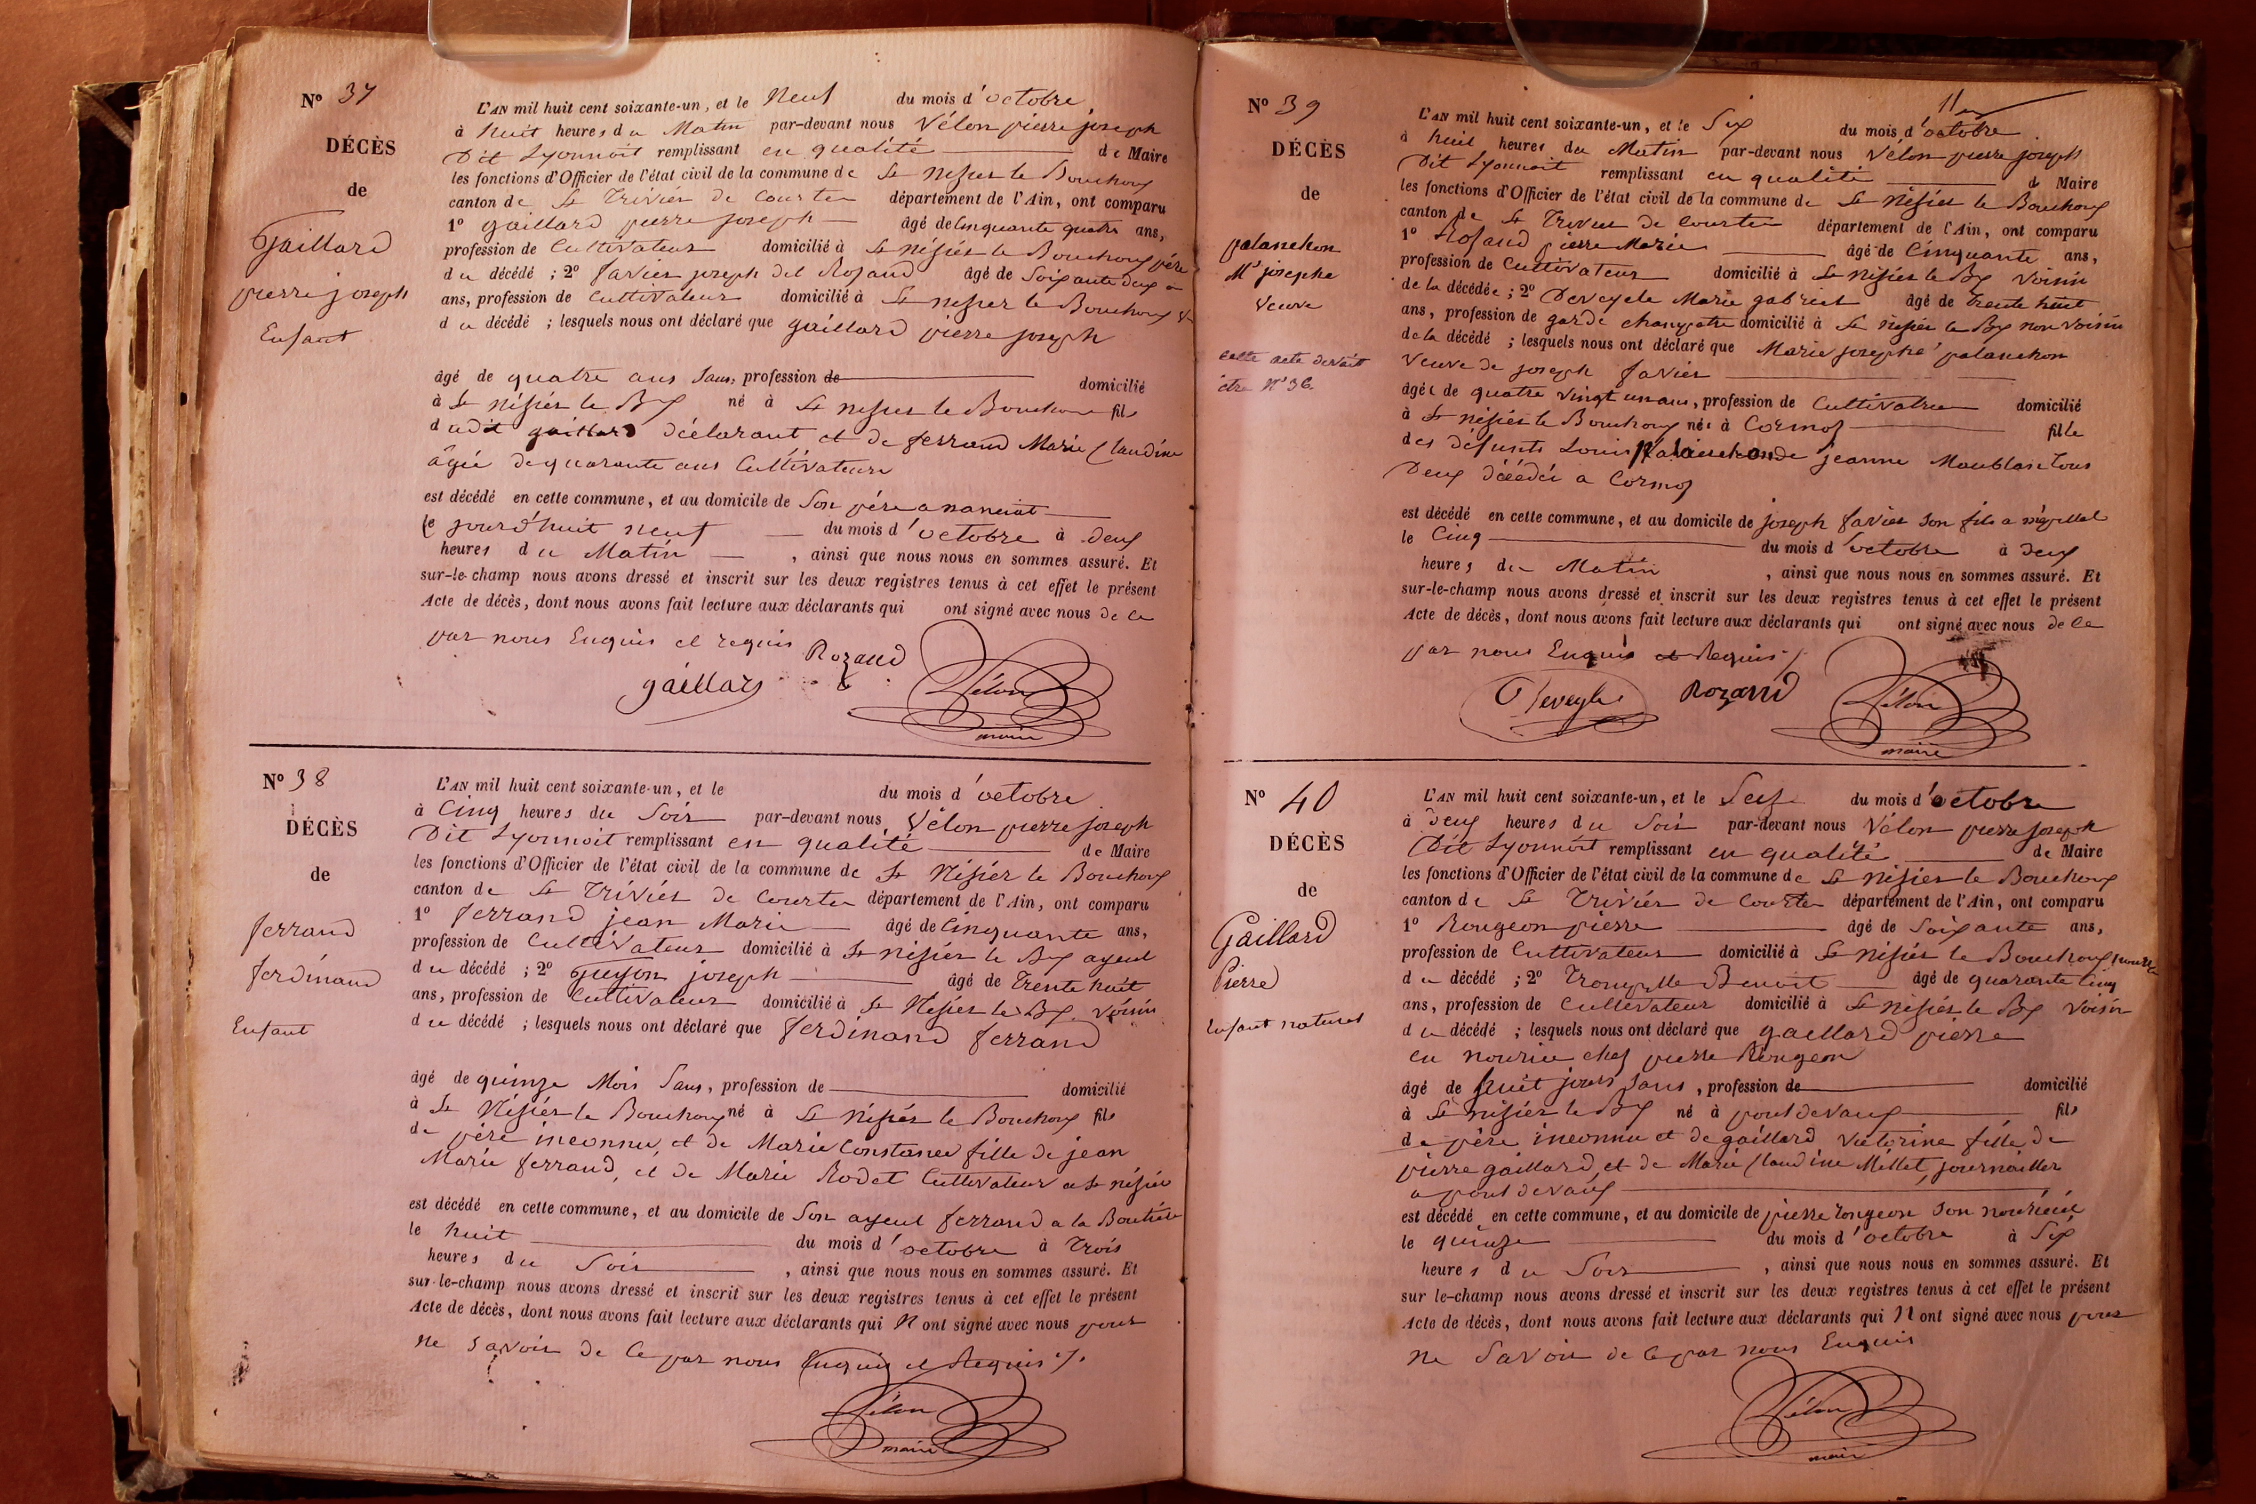 N° 37
DÉCÈS
de
Gaillard
pierre joseph
Enfant
L'AN mil huit cent soixante-un, et le Neuf du mois d'octobre
à huit heures du Matin par-devant nous Vélon pierre joseph
Dit Lyonnoit remplissant en qualité de Maire
les fonctions d'Officier de l'état civil de la commune de St Nisier le Bouchoux
canton de St Trivier de Courtes département de l'Ain, ont comparu
1° gaillard pierre joseph âgé de Cinquante quatre ans,
profession de Cultivateur domicilié à St Nisier le Bouchoux père
du décédé ; 2° favier joseph dit Rozand âgé de Soixante deux
ans, profession de Cultivateur domicilié à St nisier le Bouchoux
du décédé ; lesquels nous ont déclaré que gaillard pierre joseph
âgé de quatre ans Sans, profession de domicilié
à St Nisier le Bx né à St nisier le Bouchoux fils
dudit gaillard déclarant et de ferrand Marie Claudine
âgée de quarante ans Cultivateurs
est décédé en cette commune, et au domicile de Son père a nanciat
le jourd'huit neuf du mois d'octobre à deux
heures du Matin, ainsi que nous nous en sommes assuré. Et
sur-le-champ nous avons dressé et inscrit sur les deux registres tenus à cet effet le présent
Acte de décès, dont nous avons fait lecture aux déclarants qui ont signé avec nous de ce
par nous Enquis et requis Rozand
gaillard Vélon
maire
N° 38
DÉCÈS
de
ferrand
ferdinand
Enfant
L'AN mil huit cent soixante-un, et le du mois d'octobre
à Cinq heures du Soir par-devant nous Vélon pierre joseph
Dit Lyonnoit remplissant en qualité de Maire
les fonctions d'Officier de l'état civil de la commune de St Nisier le Bouchoux
canton de St Trivier de Courtes département de l'Ain, ont comparu
1° ferrand jean Marie âgé de Cinquante ans,
profession de Cultivateur domicilié à St nisier le Bx ayeul
du décédé ; 2° Guyon joseph âgé de Trente huit
ans, profession de Cultivateur domicilié à St Nisier le Bx Voisin
du décédé ; lesquels nous ont déclaré que ferdinand ferrand
âgé de quinze Mois Sans, profession de domicilié
à St Nisier le Bouchoux né à St Nisier le Bouchoux fils
de père inconnu et de Marie Constance fille de jean
Marie ferrand, et de Marie Rodet Cultivateur a St nisier
est décédé en cette commune, et au domicile de Son ayeul ferrand a la Boutière
le huit du mois d'octobre à Trois
heures du Soir, ainsi que nous nous en sommes assuré. Et
sur-le-champ nous avons dressé et inscrit sur les deux registres tenus à cet effet le présent
Acte de décès, dont nous avons fait lecture aux déclarants qui N ont signé avec nous pour
ne savoir de Ce par nous Enquis et Requis ./.
Vélon
maire
N° 39
DÉCÈS
de
palanchon
Me josephe
Veuve
Cette acte devrait
être N° 36
L'AN mil huit cent soixante-un, et le Six du mois d'octobre
à huit heures du Matin par-devant nous Vélon pierre joseph
Dit Lyonnoit remplissant en qualité de Maire
les fonctions d'Officier de l'état civil de la commune de St Nisier le Bouchoux
canton de St Trivier de Courtes département de l'Ain, ont comparu
1° Rosand pierre Marie âgé de Cinquante ans,
profession de Cultivateur domicilié à St Nisier le Bx Voisin
de la décédée ; 2° Deveyle Marie gabriel âgé de Trente huit
ans, profession de garde champetre domicilié à St nisier le Bx non Voisin
de la décédé ; lesquels nous ont déclaré que Marie josephe palanchon
Veuve de joseph favier
âgée de quatre Vingt un ans, profession de Cultivatrice domicilié
à St nisier le Bouchoux née à Cormoz fille
des défunts Louis Palanchon de jeanne Maublanc Tous
Deux décédés a Cormoz
est décédé en cette commune, et au domicile de joseph favier son fils a
le Cinq du mois d'octobre à deux
heures du Matin, ainsi que nous nous en sommes assuré. Et
sur-le-champ nous avons dressé et inscrit sur les deux registres tenus à cet effet le présent
Acte de décès, dont nous avons fait lecture aux déclarants qui ont signé avec nous de ce
par nous Enquis et Requis ./.
Deveyle Rozand Vélon
maire
N° 40
DÉCÈS
de
Gaillard
Pierre
Enfant naturel
L'AN mil huit cent soixante-un, et le Seize du mois d'octobre
à deux heures du Soir par-devant nous Vélon pierre joseph
Dit Lyonnoit remplissant en qualité de Maire
les fonctions d'Officier de l'état civil de la commune de St Nisier le Bouchoux
canton de St Trivier de Courtes département de l'Ain, ont comparu
1° Rongeon pierre âgé de Soixante ans,
profession de Cultivateur domicilié à St Nisier le Bouchoux
du décédé ; 2° Benoit âgé de quarante Cinq
ans, profession de Cultivateur domicilié à St Nisier le Bx Voisin
du décédé ; lesquels nous ont déclaré que gaillard pierre
en nourice chez pierre Rongeon
âgé de huit jours Sans, profession de domicilié
à St nisier le Bx né à pontdevaux fils
de père inconnu et de gaillard Victorine fille de
pierre gaillard et de Marie Claudine Millet, journailler
a pontdevaux
est décédé en cette commune, et au domicile de pierre rongeon son
le quinze du mois d'octobre à Six
heures du Soir, ainsi que nous nous en sommes assuré. Et
sur le-champ nous avons dressé et inscrit sur les deux registres tenus à cet effet le présent
Acte de décès, dont nous avons fait lecture aux déclarants qui N ont signé avec nous pour
ne Savoir de ce par nous Enquis
Vélon
maire